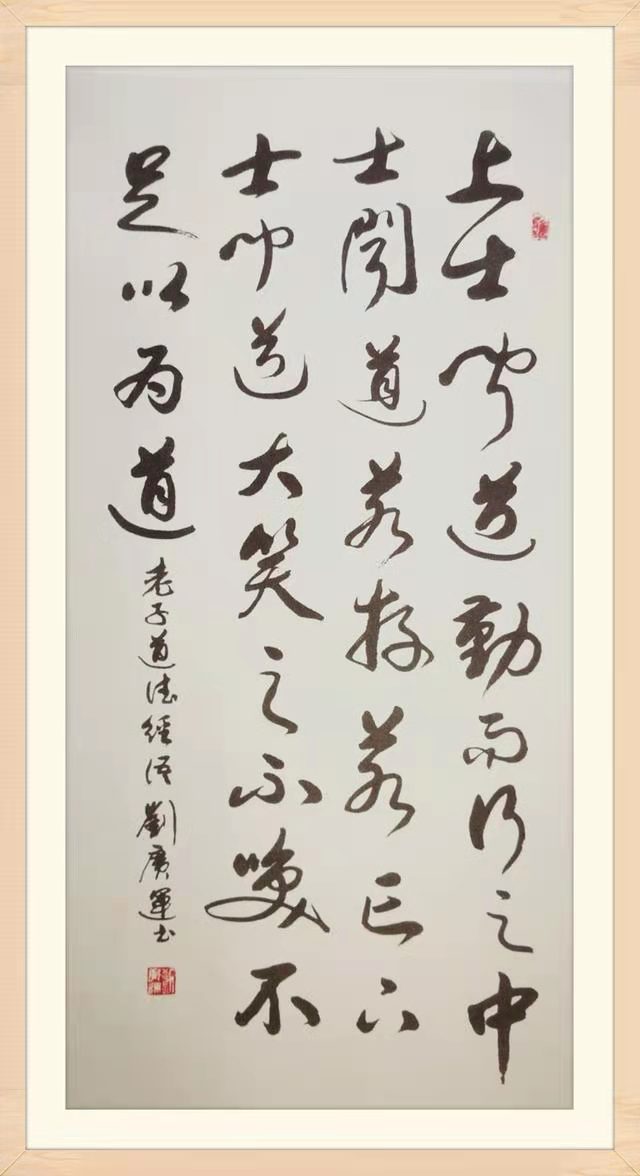 上士聞道勤而行之中
士聞道若存若亡下
士聞道大笑之不咲不
足以為道
老子道德經語 劉廣運书